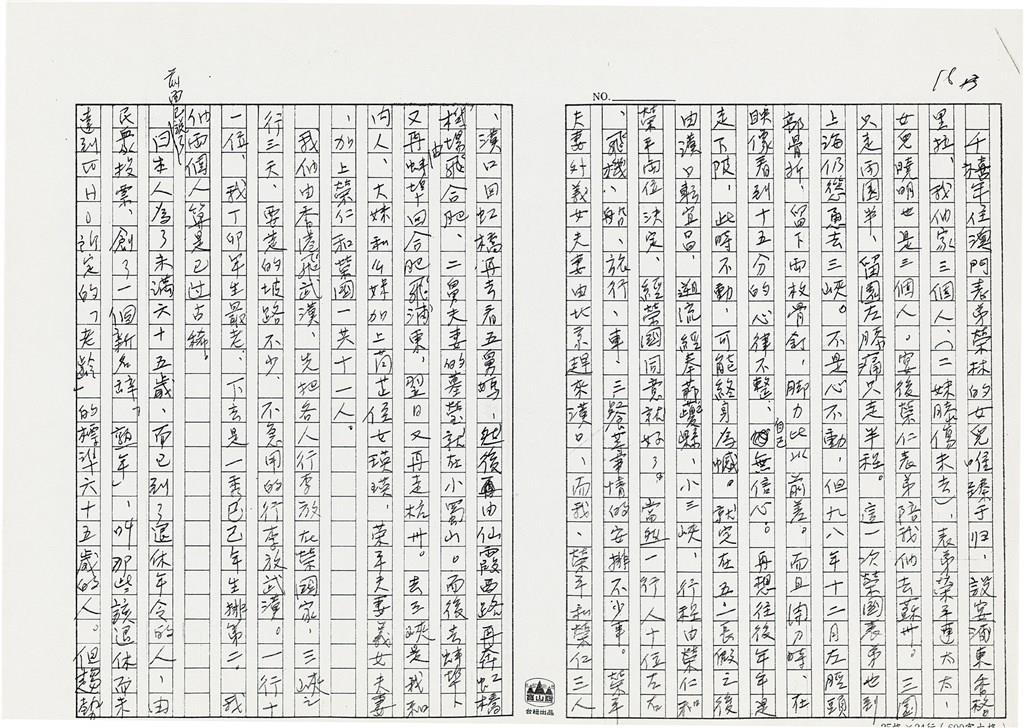 16
NO.
千禧年住澳門表弟榮林的女兒唯臻于归,設宴浦東香格
里拉,我们家三個人(二妹膝傷未去),表弟榮平連太太、
女兒曉明也是三個人。宴後榮仁表弟陪我们去蘇卅。三園
只走兩園半,留園左膝痛只走半程。這一次榮國表弟也到
上海仍慫恿去三峽。不是心不動,但九八年十二月左脛頭
部骨折,留下兩枚骨釘,脚力此以前差。而且開刀時,在
映像看到十五分的心律不整,自己無信心。再想往後年年是
走下陂,此時不動,可能終身為憾。就定在五一長假之後
由漢口転宜昌,遊流經奉節夔縣,小三峽,行程由榮仁和
榮平兩位決定,經榮國同意就好了。當然一行人十位左右
、飛機、船、旅行、車、三餐芝蔴事情的安排不少事。榮平
夫妻外義女夫妻由北京趕來漢口,而我、榮平和榮仁三人
、漢口回虹橋再去看五舅媽,然後再由仙霞西路再奔虹橋
機場飛合肥、二舅夫妻的墓塋就在小蜀山。而後去蚌埠
又再由蚌埠回合肥飛浦東,翌日又再走杭卅。去三峽是我和
内人、大妹和么妹加上茼芷侄女瑛瑛,荣平夫妻義女夫妻
,加上榮仁和榮國一共十一人。
我们由香港飛武漢,先把各人行李放在榮國家,三峽之
行三天,要走的坡路不少,不急用的行李放武漢。一行十
一位,我丁卯年生最老,下去是一秀己巳年生排第二,我
们兩個人算是已过古稀。
前面已說了
日本人為了未滿六十五歲,而已到了退休年令的人,由
民眾投票,創了一個新名辞,「熟年」,叫那些該退休而未
達到WHO所定的「老齡」的標準六十五歲的人。但趨勢
台紙出品
25格×24行(600字六格)